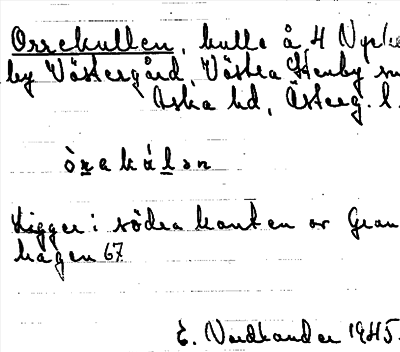 Orrekullen, kulle å 4 Nyckel
by Västergård, Västra Stenby sn
Aska hd, Österg. l.
òrakálən
Ligger i södra kanten av Gran
hagen 67.
E. Nordlander 1945.